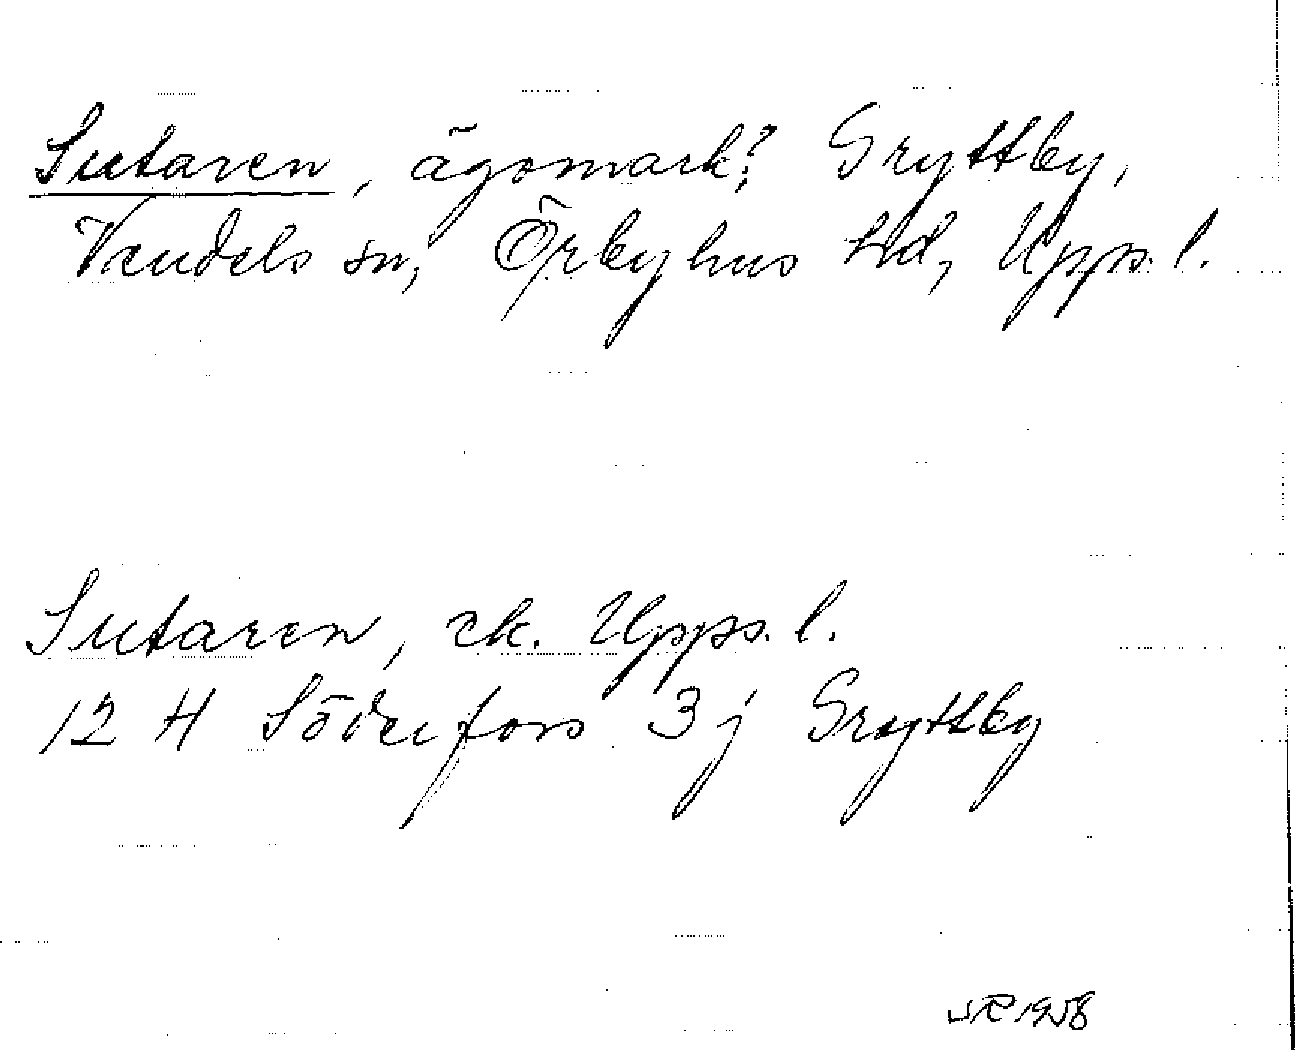 Sutaren, ägomark? Gryttby,
Vendels sn, Örbyhus hd, Upps. l.
Sutaren, ek. Upps. l.
12 H Söderfors 3 j Gryttby
1958